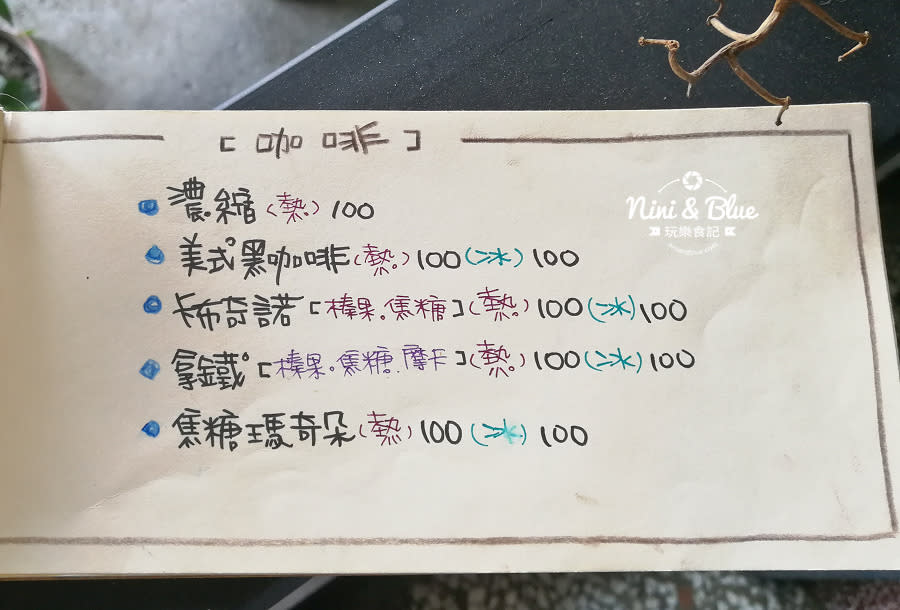 [咖啡]
濃縮(熱)100
美式黑咖啡(熱)100(冰)100
卡布奇諾[榛果.焦糖](熱)100(冰)100
拿鐵[榛果.焦糖.摩卡](熱)100(冰)100
焦糖瑪奇朵(熱)100(冰)100
Nini & Blue
玩樂食記